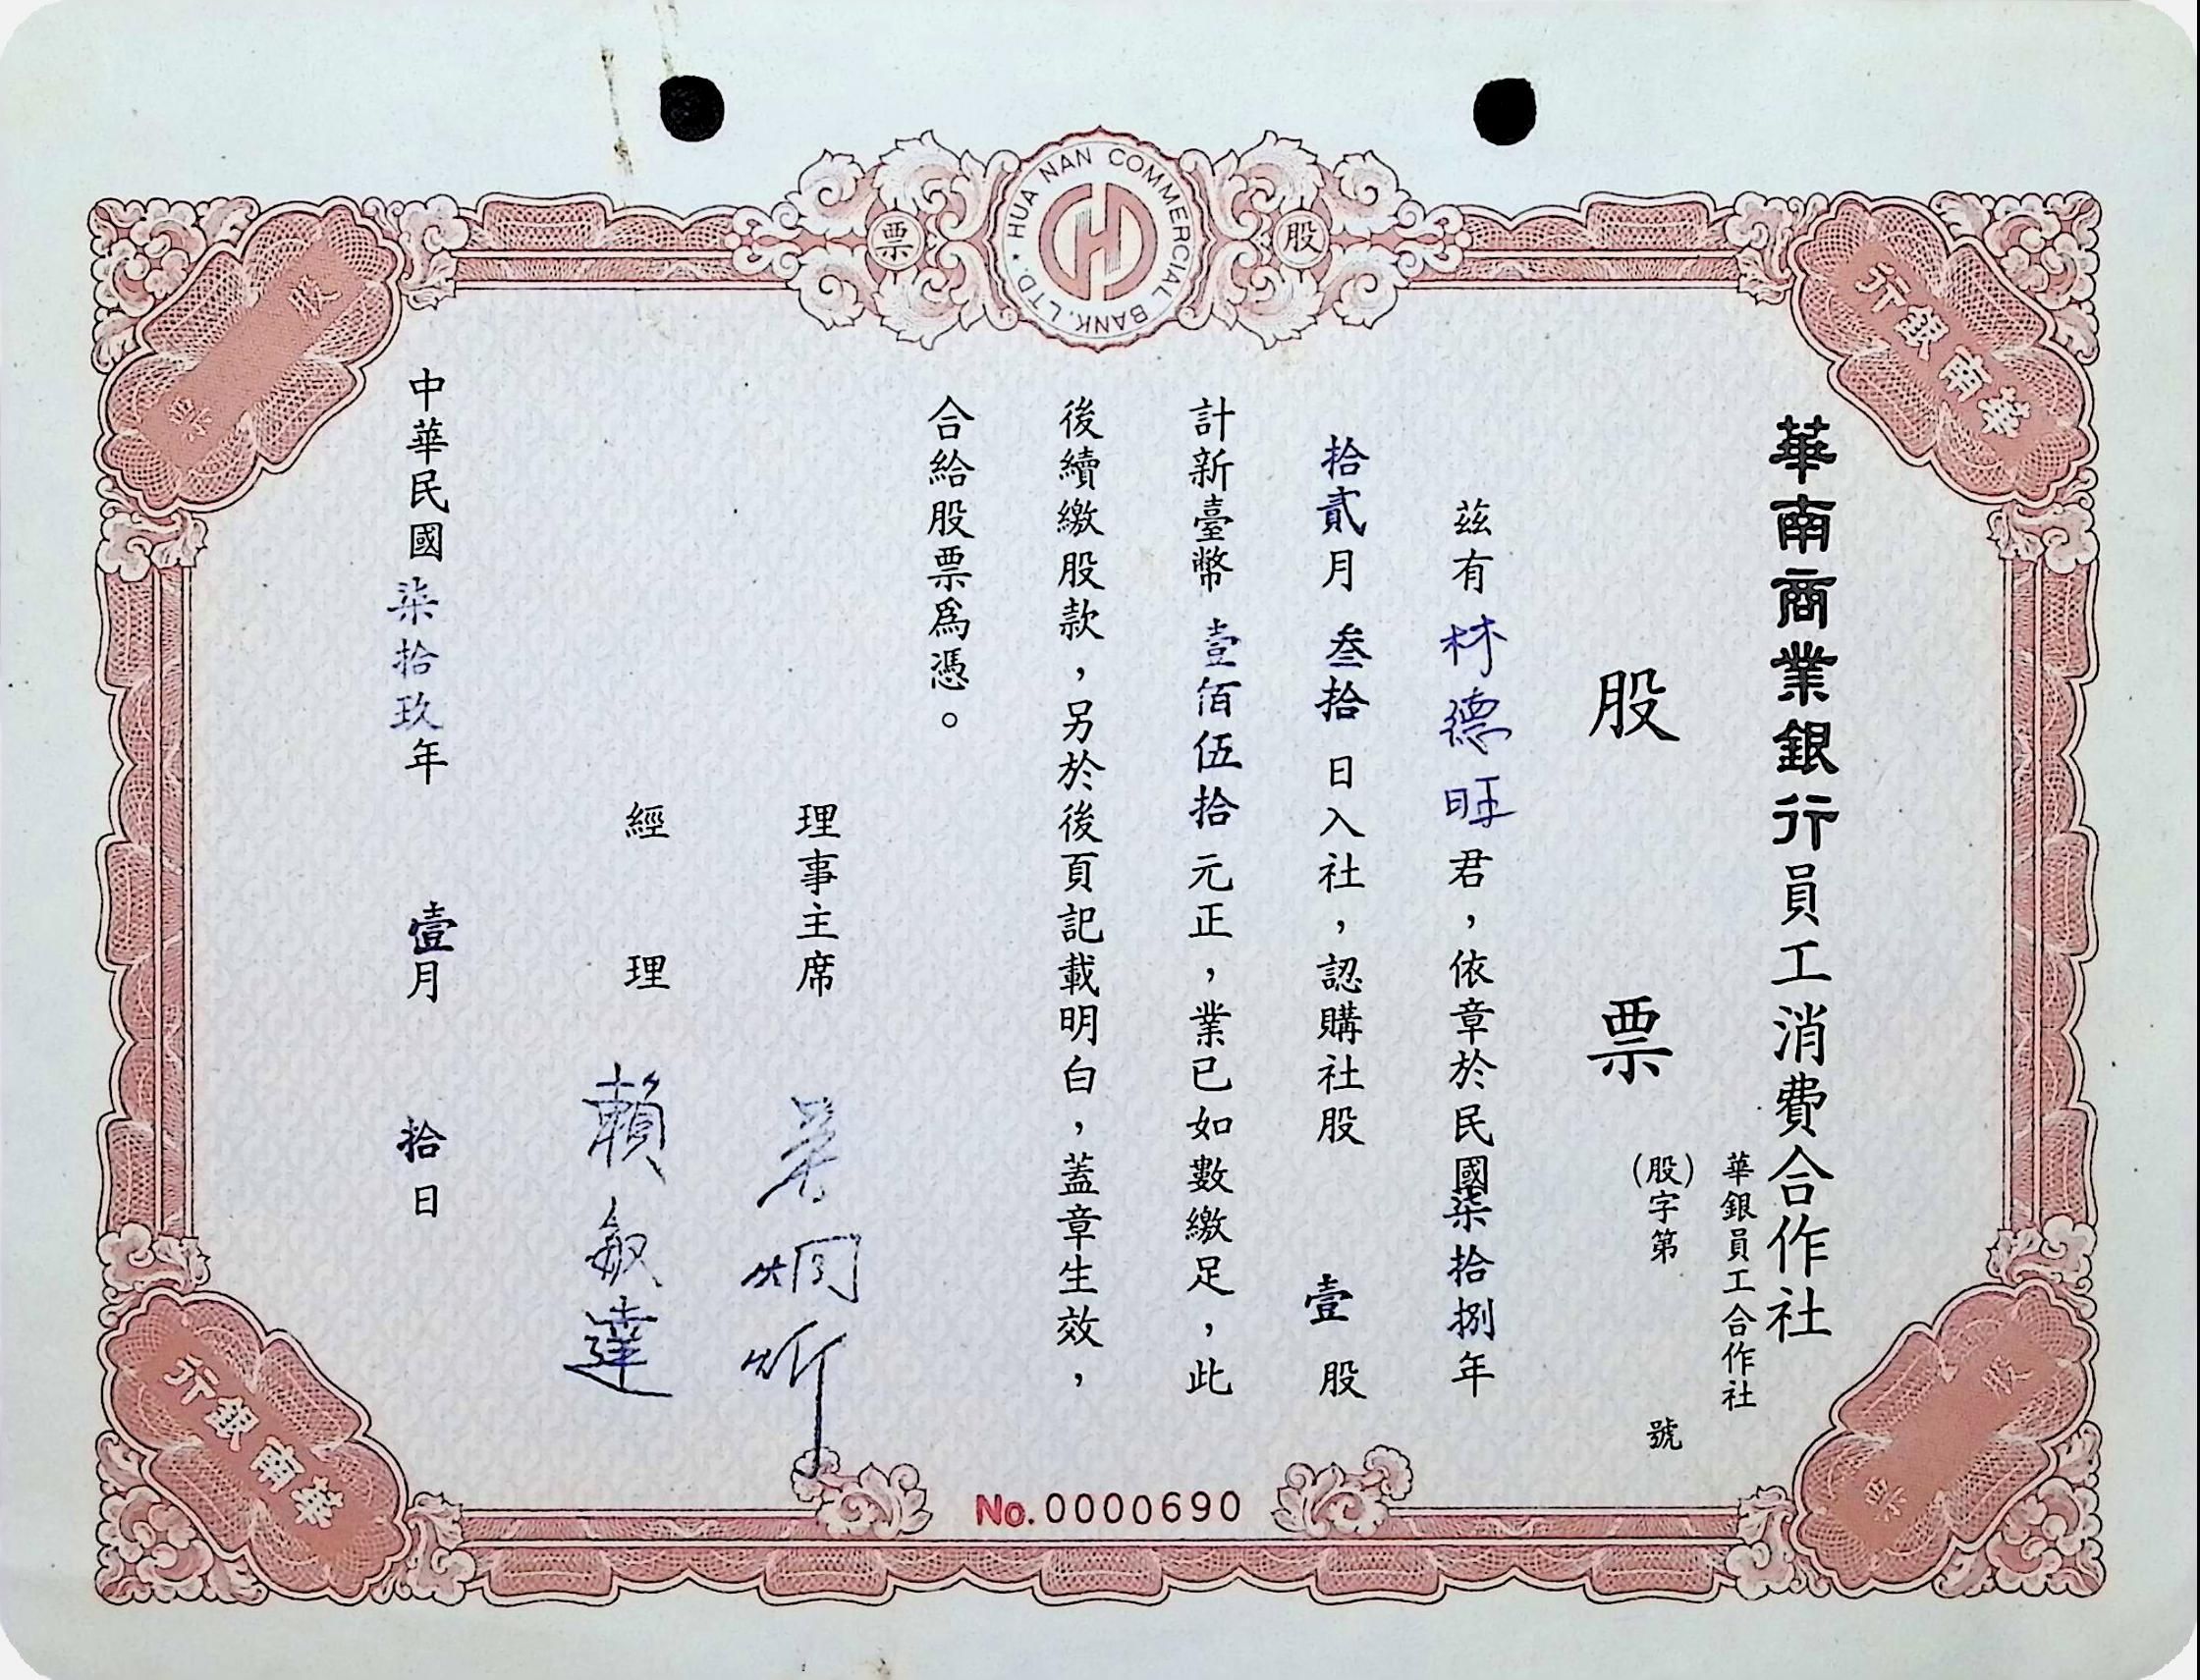 HUA NAN COMMERCIAL BANK, LTD.
股票
華南銀行
股票
華南商業銀行員工消費合作社
股票
華銀員工合作社
(股)字第 號
茲有林德旺君，依章於民國柒拾捌年
拾貳月叁拾日入社，認購社股 壹股
計新臺幣壹佰伍拾元正，業已如數繳足，此
後續繳股款，另於後頁記載明白，蓋章生效，
合給股票為憑。
理事主席
經理 賴敏達
中華民國柒拾玖年 壹月 拾日
No. 0000690
華南銀行
股票